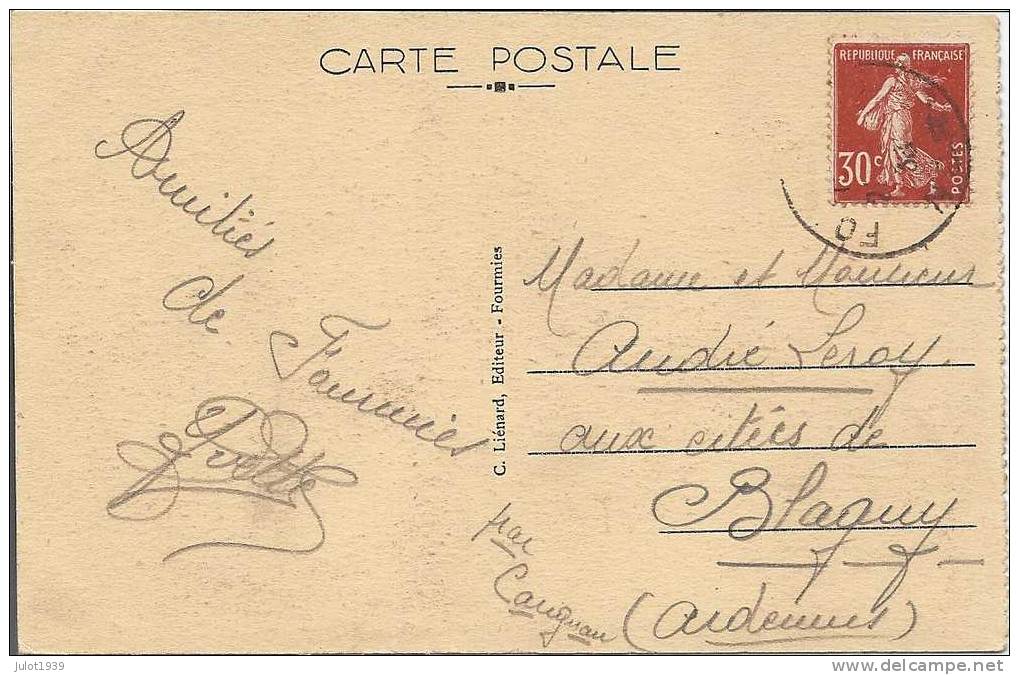 CARTE POSTALE
RÉPUBLIQUE FRANÇAISE
30c
POSTES
FO
Amitiés
de
Fourmies
Yvette
C. Liénard, Editeur - Fourmies
Madame et Monsieur
André Leroy
aux cités de
Blagny
par
Carignan
(Ardennes)
julot1939
www.delcampe.net